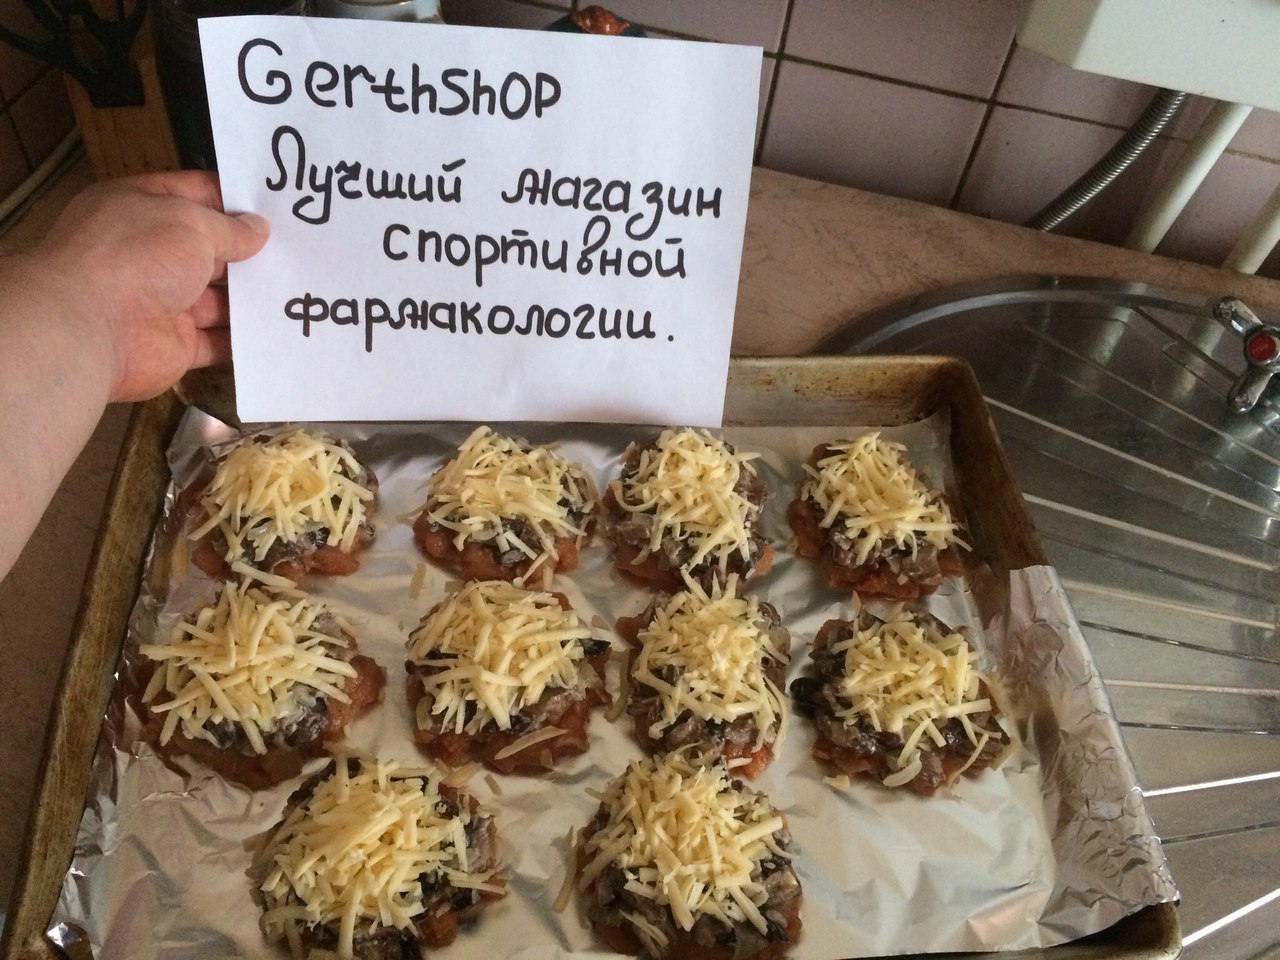 GerthShop
Лучший магазин
спортивной
фармакологии.